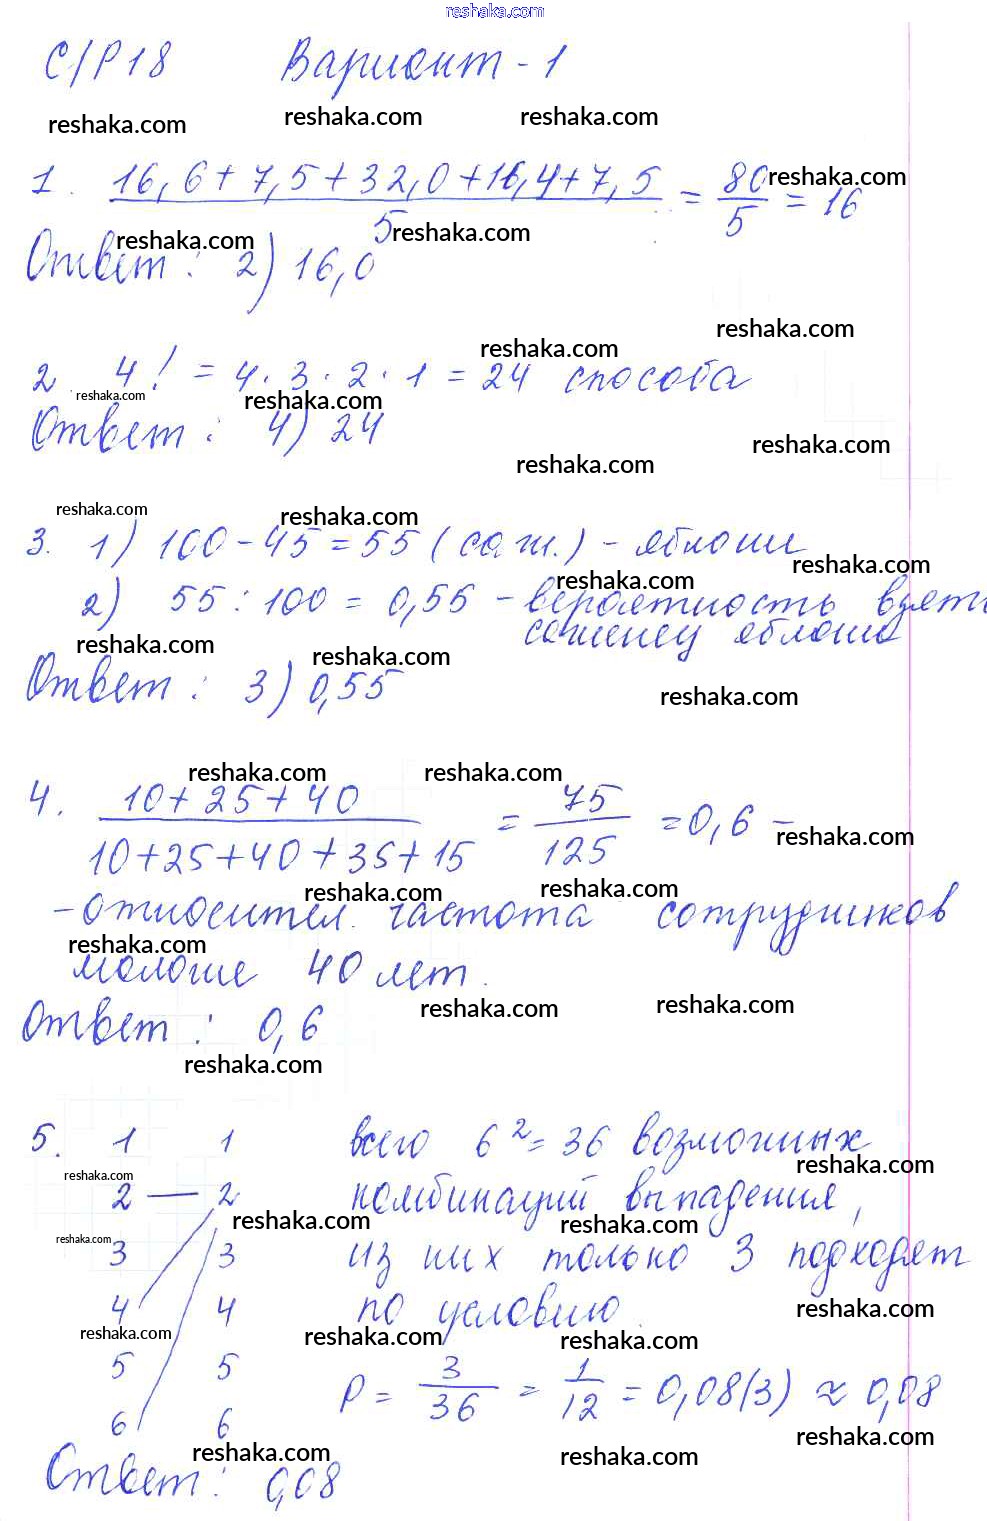 reshaka.com
С/Р 18 Вариант - 1
reshaka.com reshaka.com reshaka.com
1. 16,6 + 7,5 + 32,0 + 16,4 + 7,5 / 5 = 80 / 5 = 16
reshaka.com
reshaka.com reshaka.com
Ответ: 2) 16,0
reshaka.com reshaka.com
2. 4! = 4 · 3 · 2 · 1 = 24 способа
reshaka.com reshaka.com
Ответ: 4) 24
reshaka.com reshaka.com
reshaka.com reshaka.com
3. 1) 100 - 45 = 55 (саж.) - яблони
reshaka.com reshaka.com
2) 55 : 100 = 0,55 - вероятность взять
саженец яблони
reshaka.com reshaka.com
Ответ: 3) 0,55
reshaka.com
reshaka.com reshaka.com
4. 10 + 25 + 40 / 10 + 25 + 40 + 35 + 15 = 75 / 125 = 0,6 -
reshaka.com
reshaka.com reshaka.com
- относител. частота сотрудников
reshaka.com
моложе 40 лет.
reshaka.com reshaka.com
Ответ: 0,6
reshaka.com
5. 1 1 всего 6² = 36 возможных
reshaka.com reshaka.com
2 — 2 комбинаций выпадения,
reshaka.com reshaka.com reshaka.com
3 3 из них только 3 подходят
4 4 по условию.
reshaka.com reshaka.com reshaka.com reshaka.com
5 5 P = 3 / 36 = 1 / 12 = 0,08(3) ≈ 0,08
6 6
reshaka.com reshaka.com reshaka.com
Ответ: 0,08